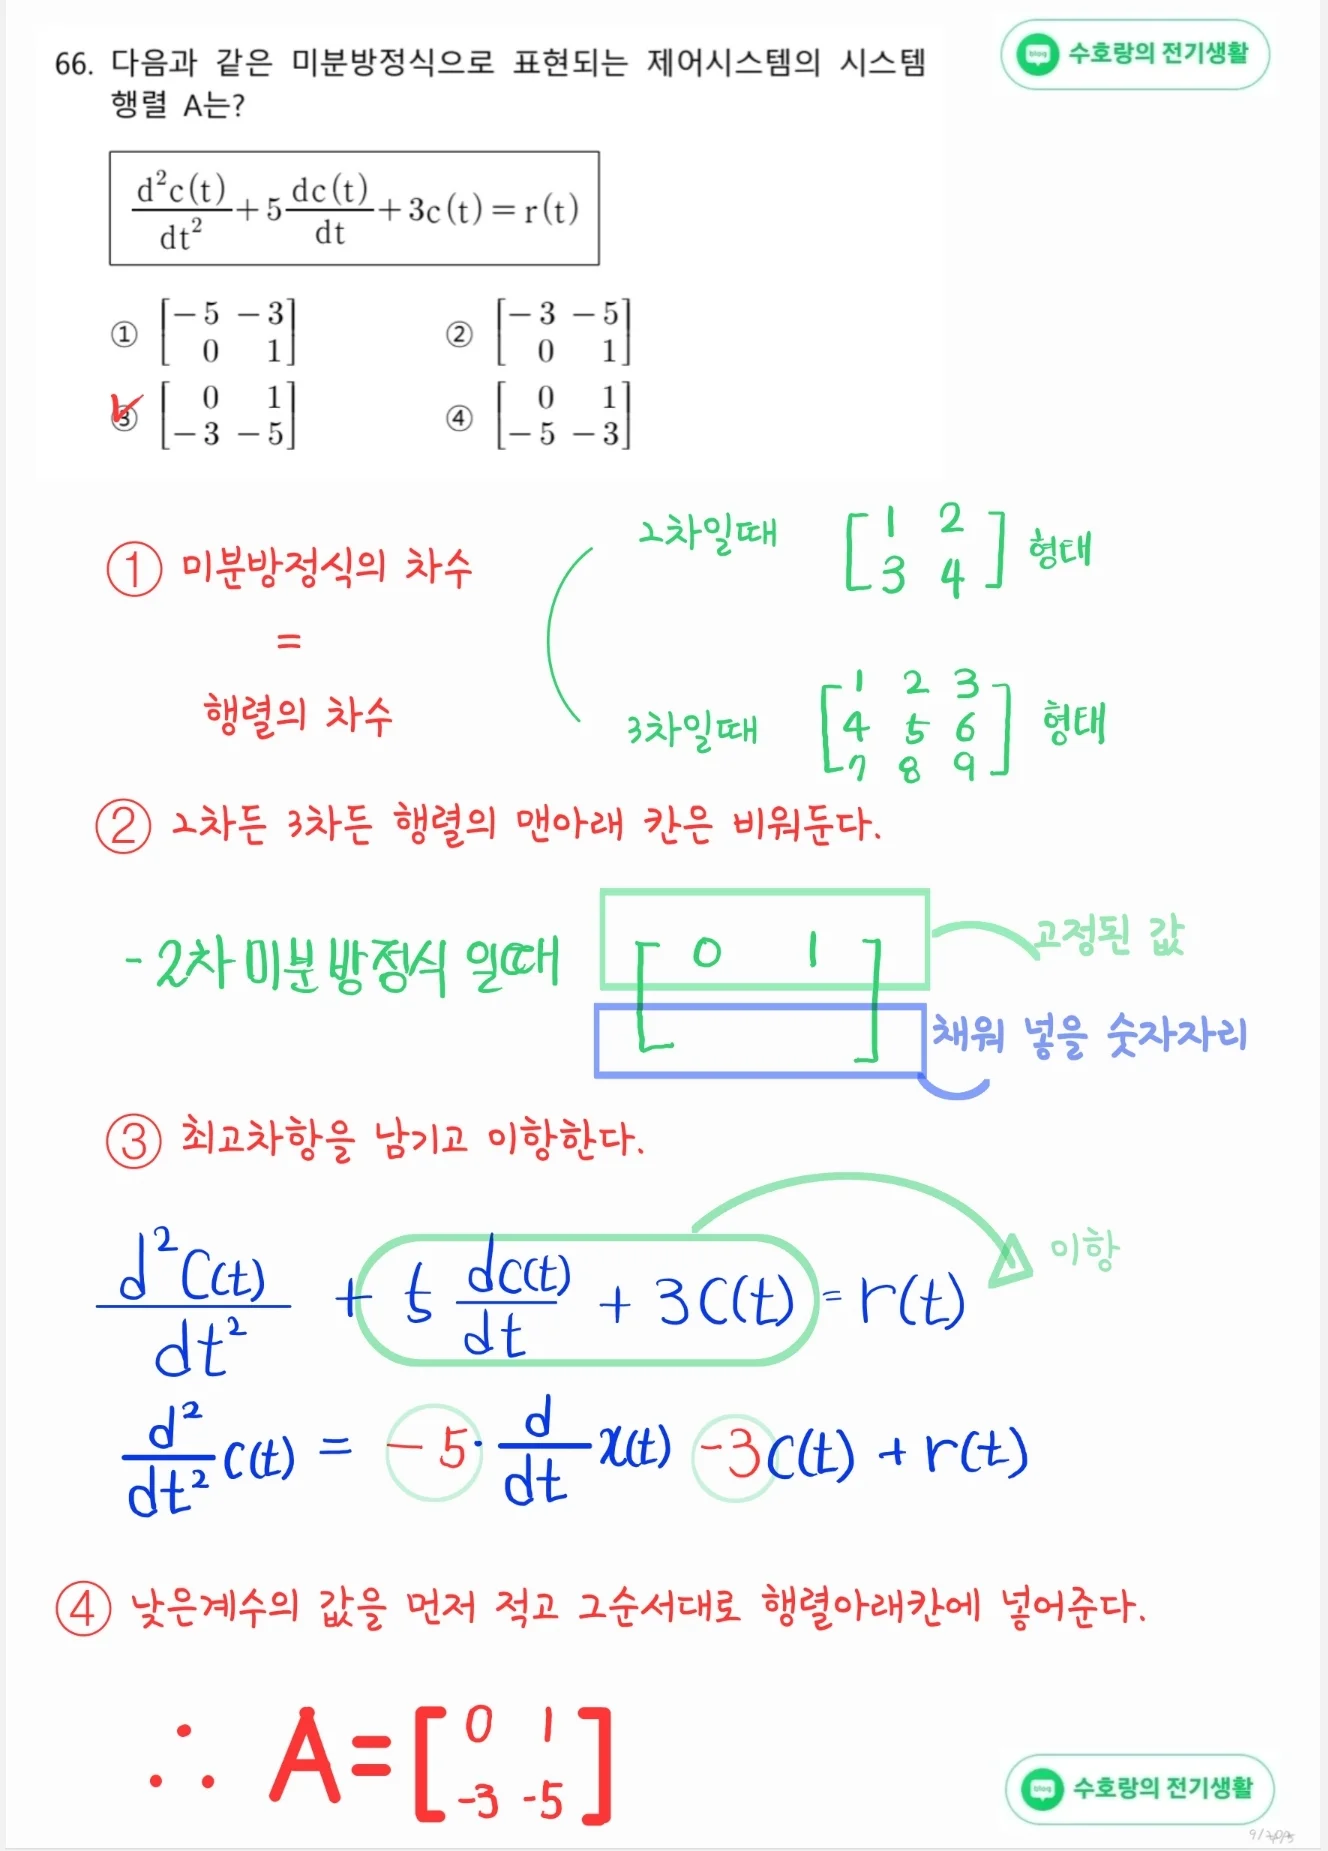 66. 다음과 같은 미분방정식으로 표현되는 제어시스템의 시스템
수호랑의 전기생활
행렬 A는?
d²c(t)/dt² + 5 dc(t)/dt + 3c(t) = r(t)
① [-5 -3; 0 1] ② [-3 -5; 0 1]
③ [0 1; -3 -5] ④ [0 1; -5 -3]
① 미분방정식의 차수
=
행렬의 차수
2차일때 [1 2; 3 4] 형태
3차일때 [1 2 3; 4 5 6; 7 8 9] 형태
② 2차든 3차든 행렬의 맨아래 칸은 비워둔다.
- 2차 미분방정식 일때 [0 1]
고정된 값
채워 넣을 숫자자리
③ 최고차항을 남기고 이항한다.
d²C(t)/dt² + 5 dC(t)/dt + 3C(t) = r(t)
이항
d²/dt² C(t) = -5· d/dt x(t) -3C(t) + r(t)
④ 낮은계수의 값을 먼저 적고 그순서대로 행렬아래칸에 넣어준다.
∴ A = [0 1; -3 -5]
수호랑의 전기생활